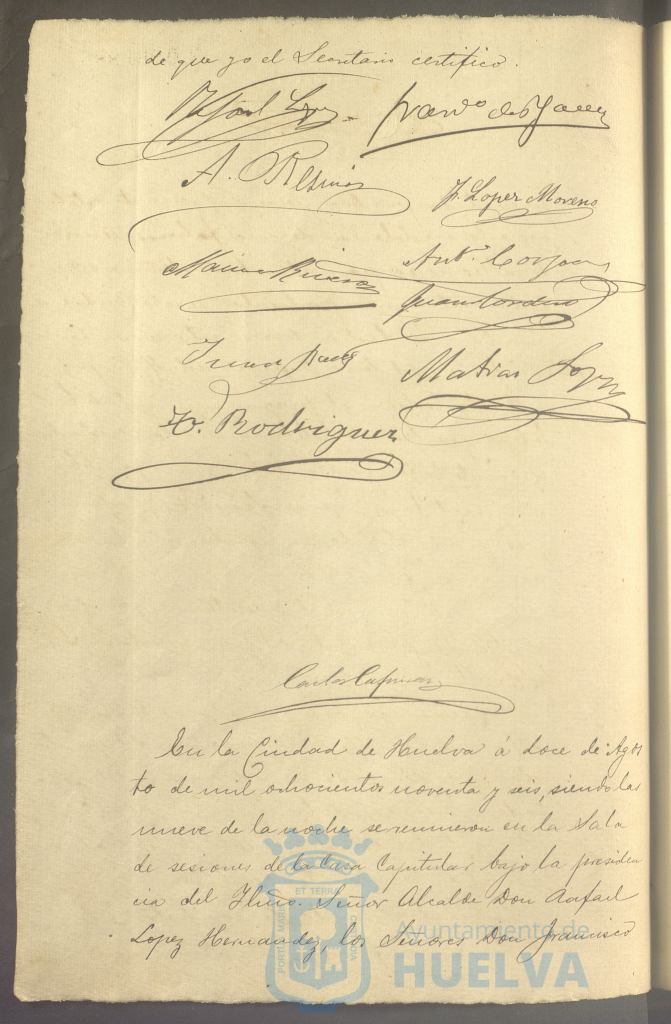 de que yo el Secretario certifico.
Rafael Lopez
A. Resinos
F. Lopez Moreno
Rivera
Antº
Juan Cordero
Juan
Matias Lopez
F. Rodriguez
Carlos
En la Ciudad de Huelva á doce de Agos
to de mil ochocientos noventa y seis, siendo las
nueve de la noche se reunieron en la Sala
de sesiones de la Casa Capitular bajo la presiden
cia del Yltmo. Señor Alcalde Don Rafael
Lopez Hernandez, los Señores Don Francisco
PORTUS MARIS ET TERRAE CUSTODIA
Ayuntamiento de
HUELVA